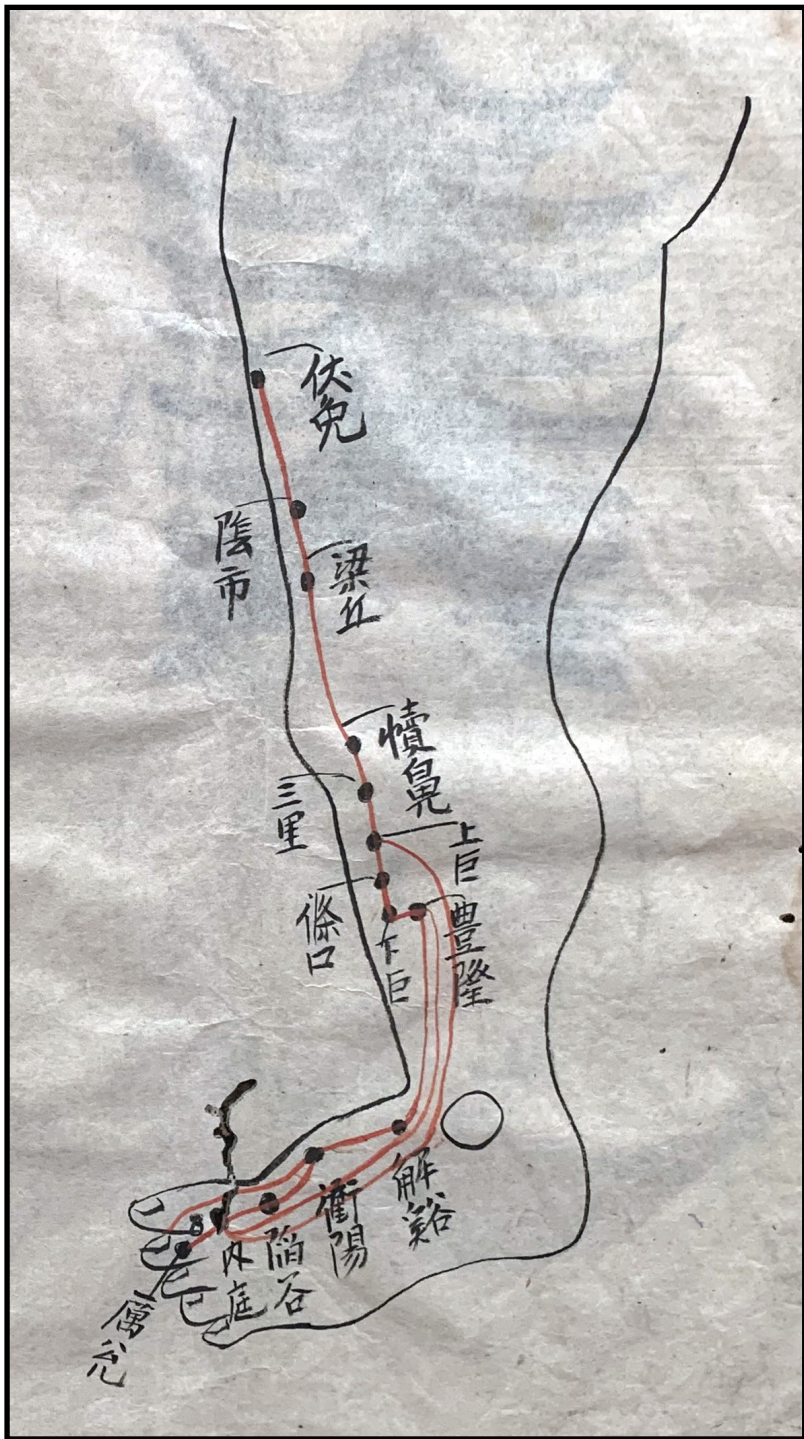 伏兔
陰市
梁丘
犢鼻
三里
上巨
條口
下巨
豐隆
解谿
衝陽
陷谷
內庭
厲兌